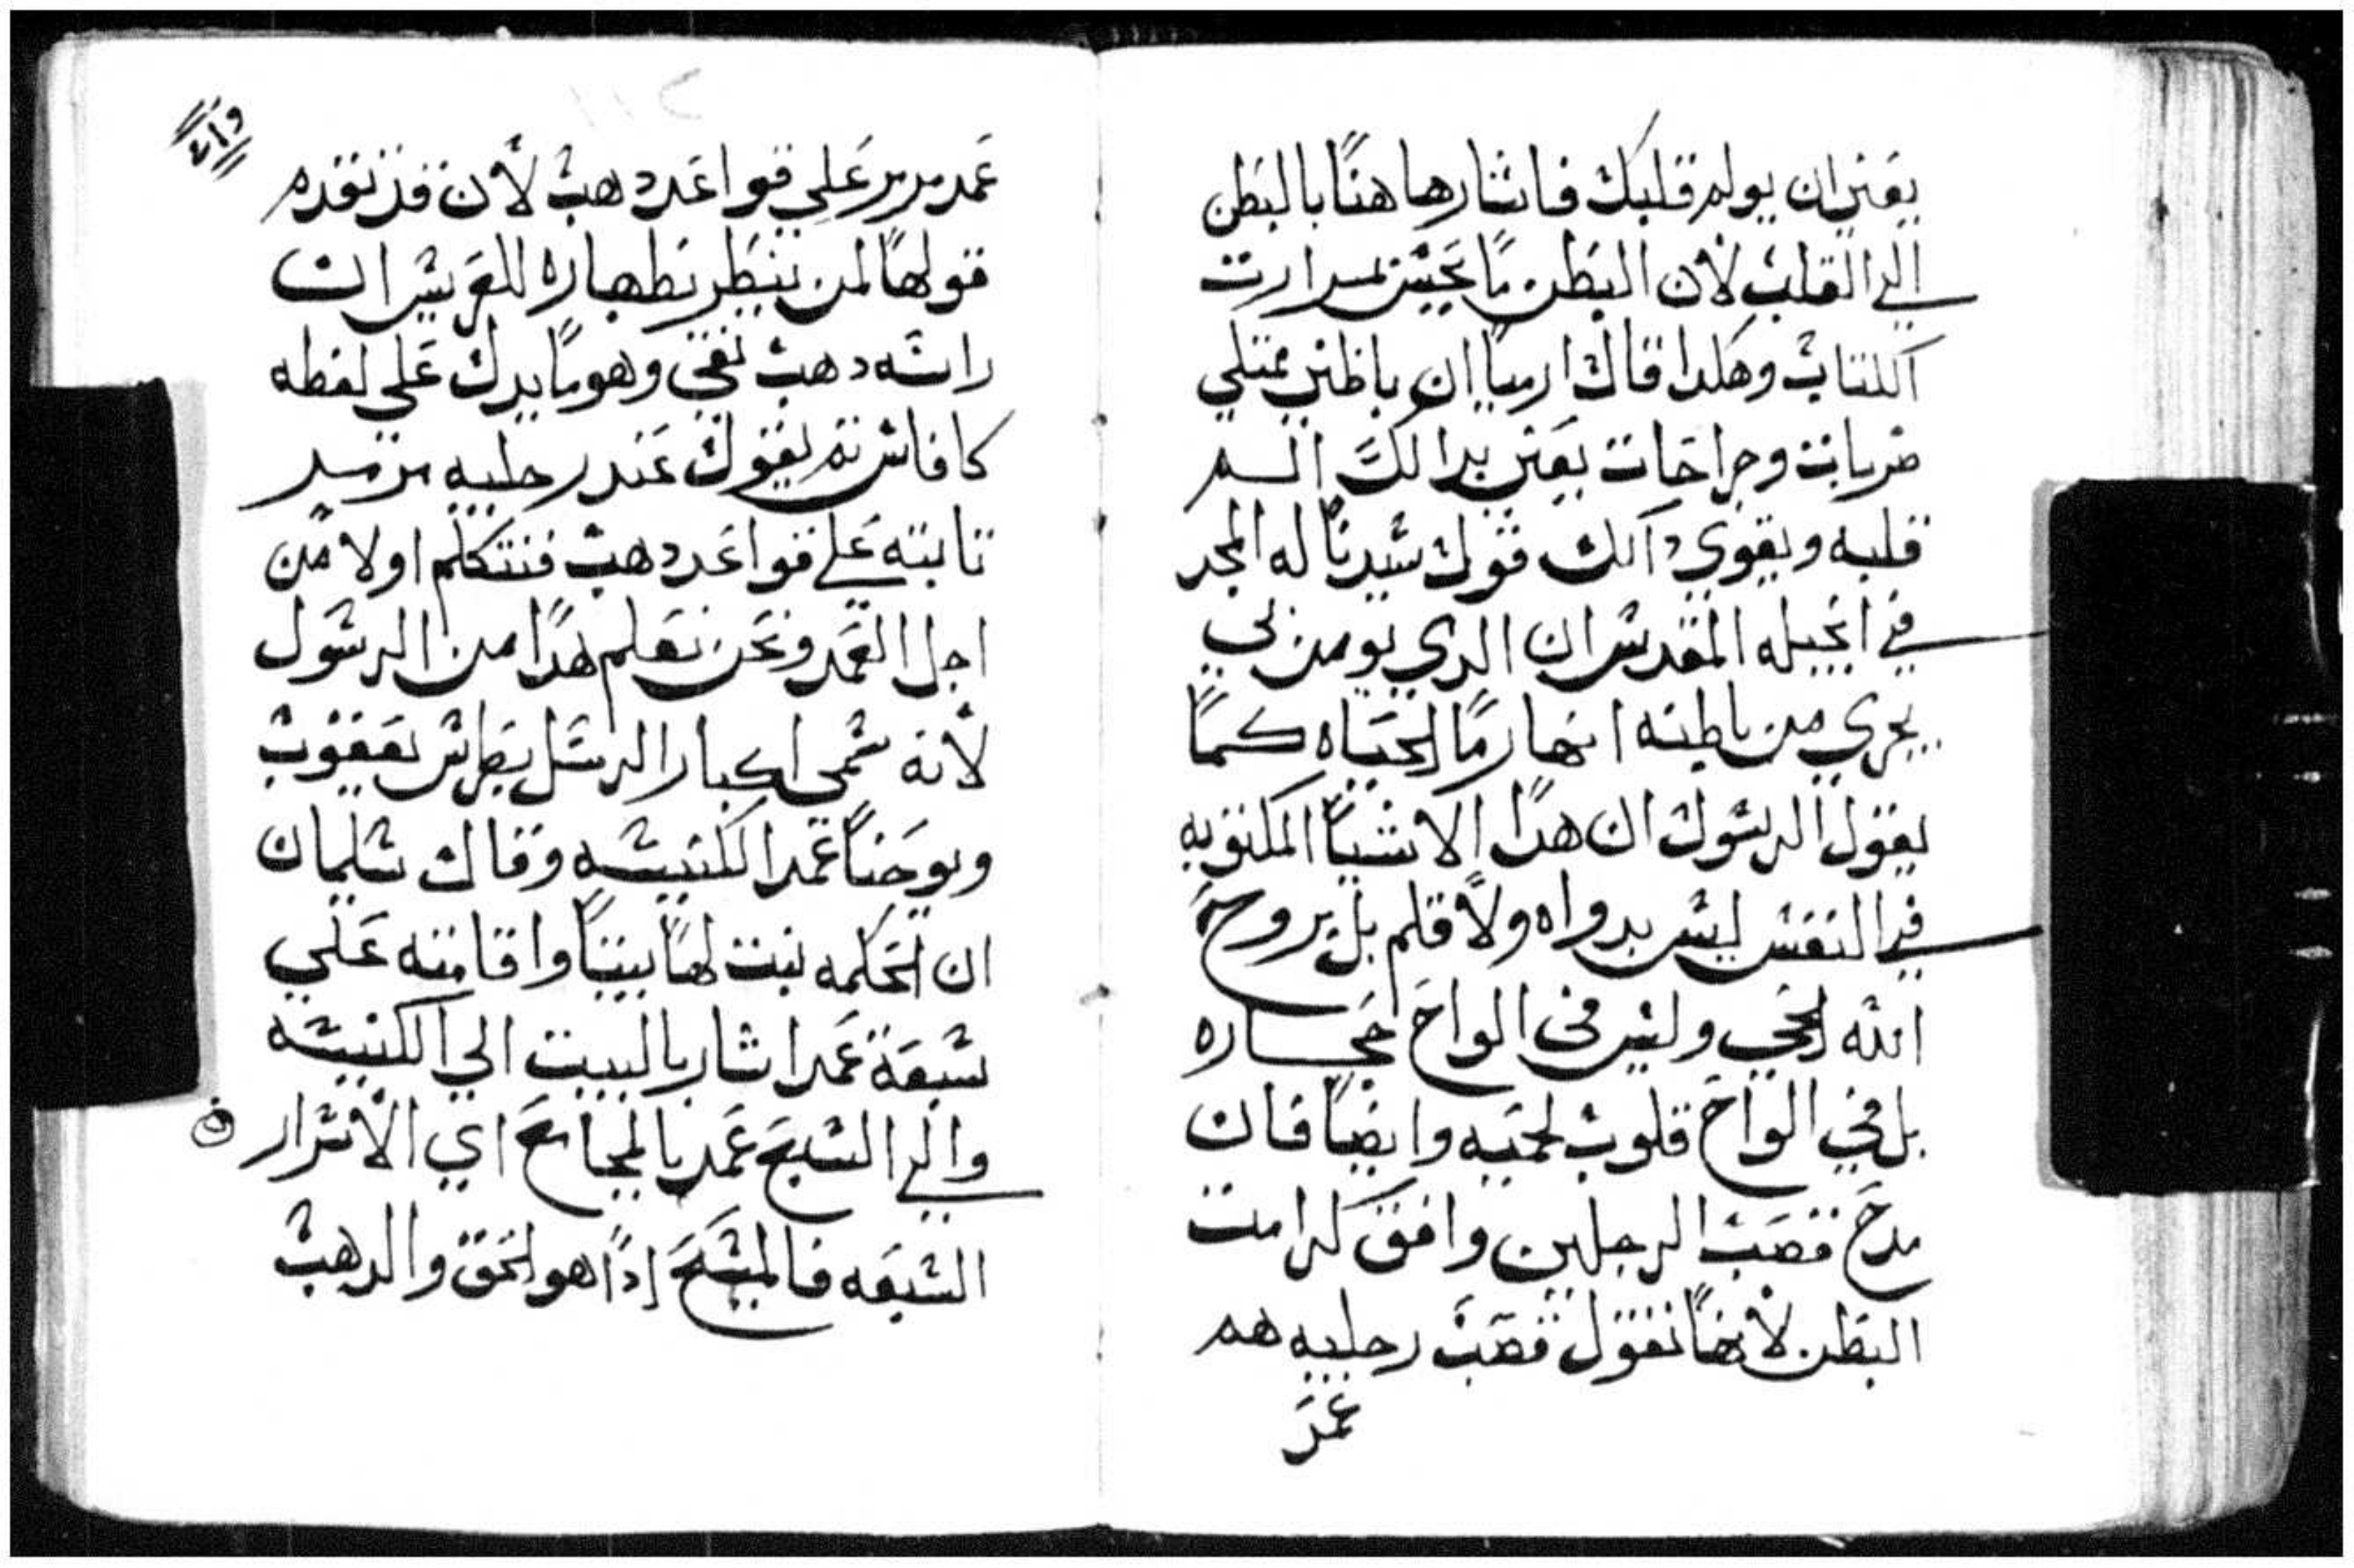 يعني ان يولم قلبك فاشار هاهنا بالبطن
الي القلب لان البطن ما تحس بمرارت
الكتاب وهكدا قال ارميا ان باطني ممتلي
ضربات وجراحات يعني بدالك الـم
قلبه ويقوي دالك قول سيدنا له المجد
في انجيله المقدس ان الدي يومن بي
يجري من باطنه انهار ما الحياه كما
يقول الرسول ان هدا الاشيا المكتوبه
في النفس ليس بدواه ولا قلم بل بروح
الله الحي وليس في الواح حجاره
بل في الواح قلوب لحميه وايضا فان
مدح قصب الرجلين وافق كرامت
البطن لانها تقول قصب رجليه هم
عمد
عمد مرمر علي قواعد دهب لان قد تقدم
قولها لمن ينظر بطهاره للعريس ان
راسه دهب نقي وهو ما يدل علي لفظه
كافاس ثم يقول عند رجليه
تابته علي قواعد دهب فنتكلم اولا من
اجل العمد ونحن نعلم هدا من الرسول
لانه سمي اكبار الرسل بطرس يعقوب
ويوحنا عمدا للكنيسه وقال سليمان
ان الحكمه بنت لها بيتا واقامته علي
سبعة عمد اشار بالبيت الي الكنيسه
والي السبع عمد بالمجامع اي الاسرار
السبعه فالمسيح ادا هو الحق والدهب